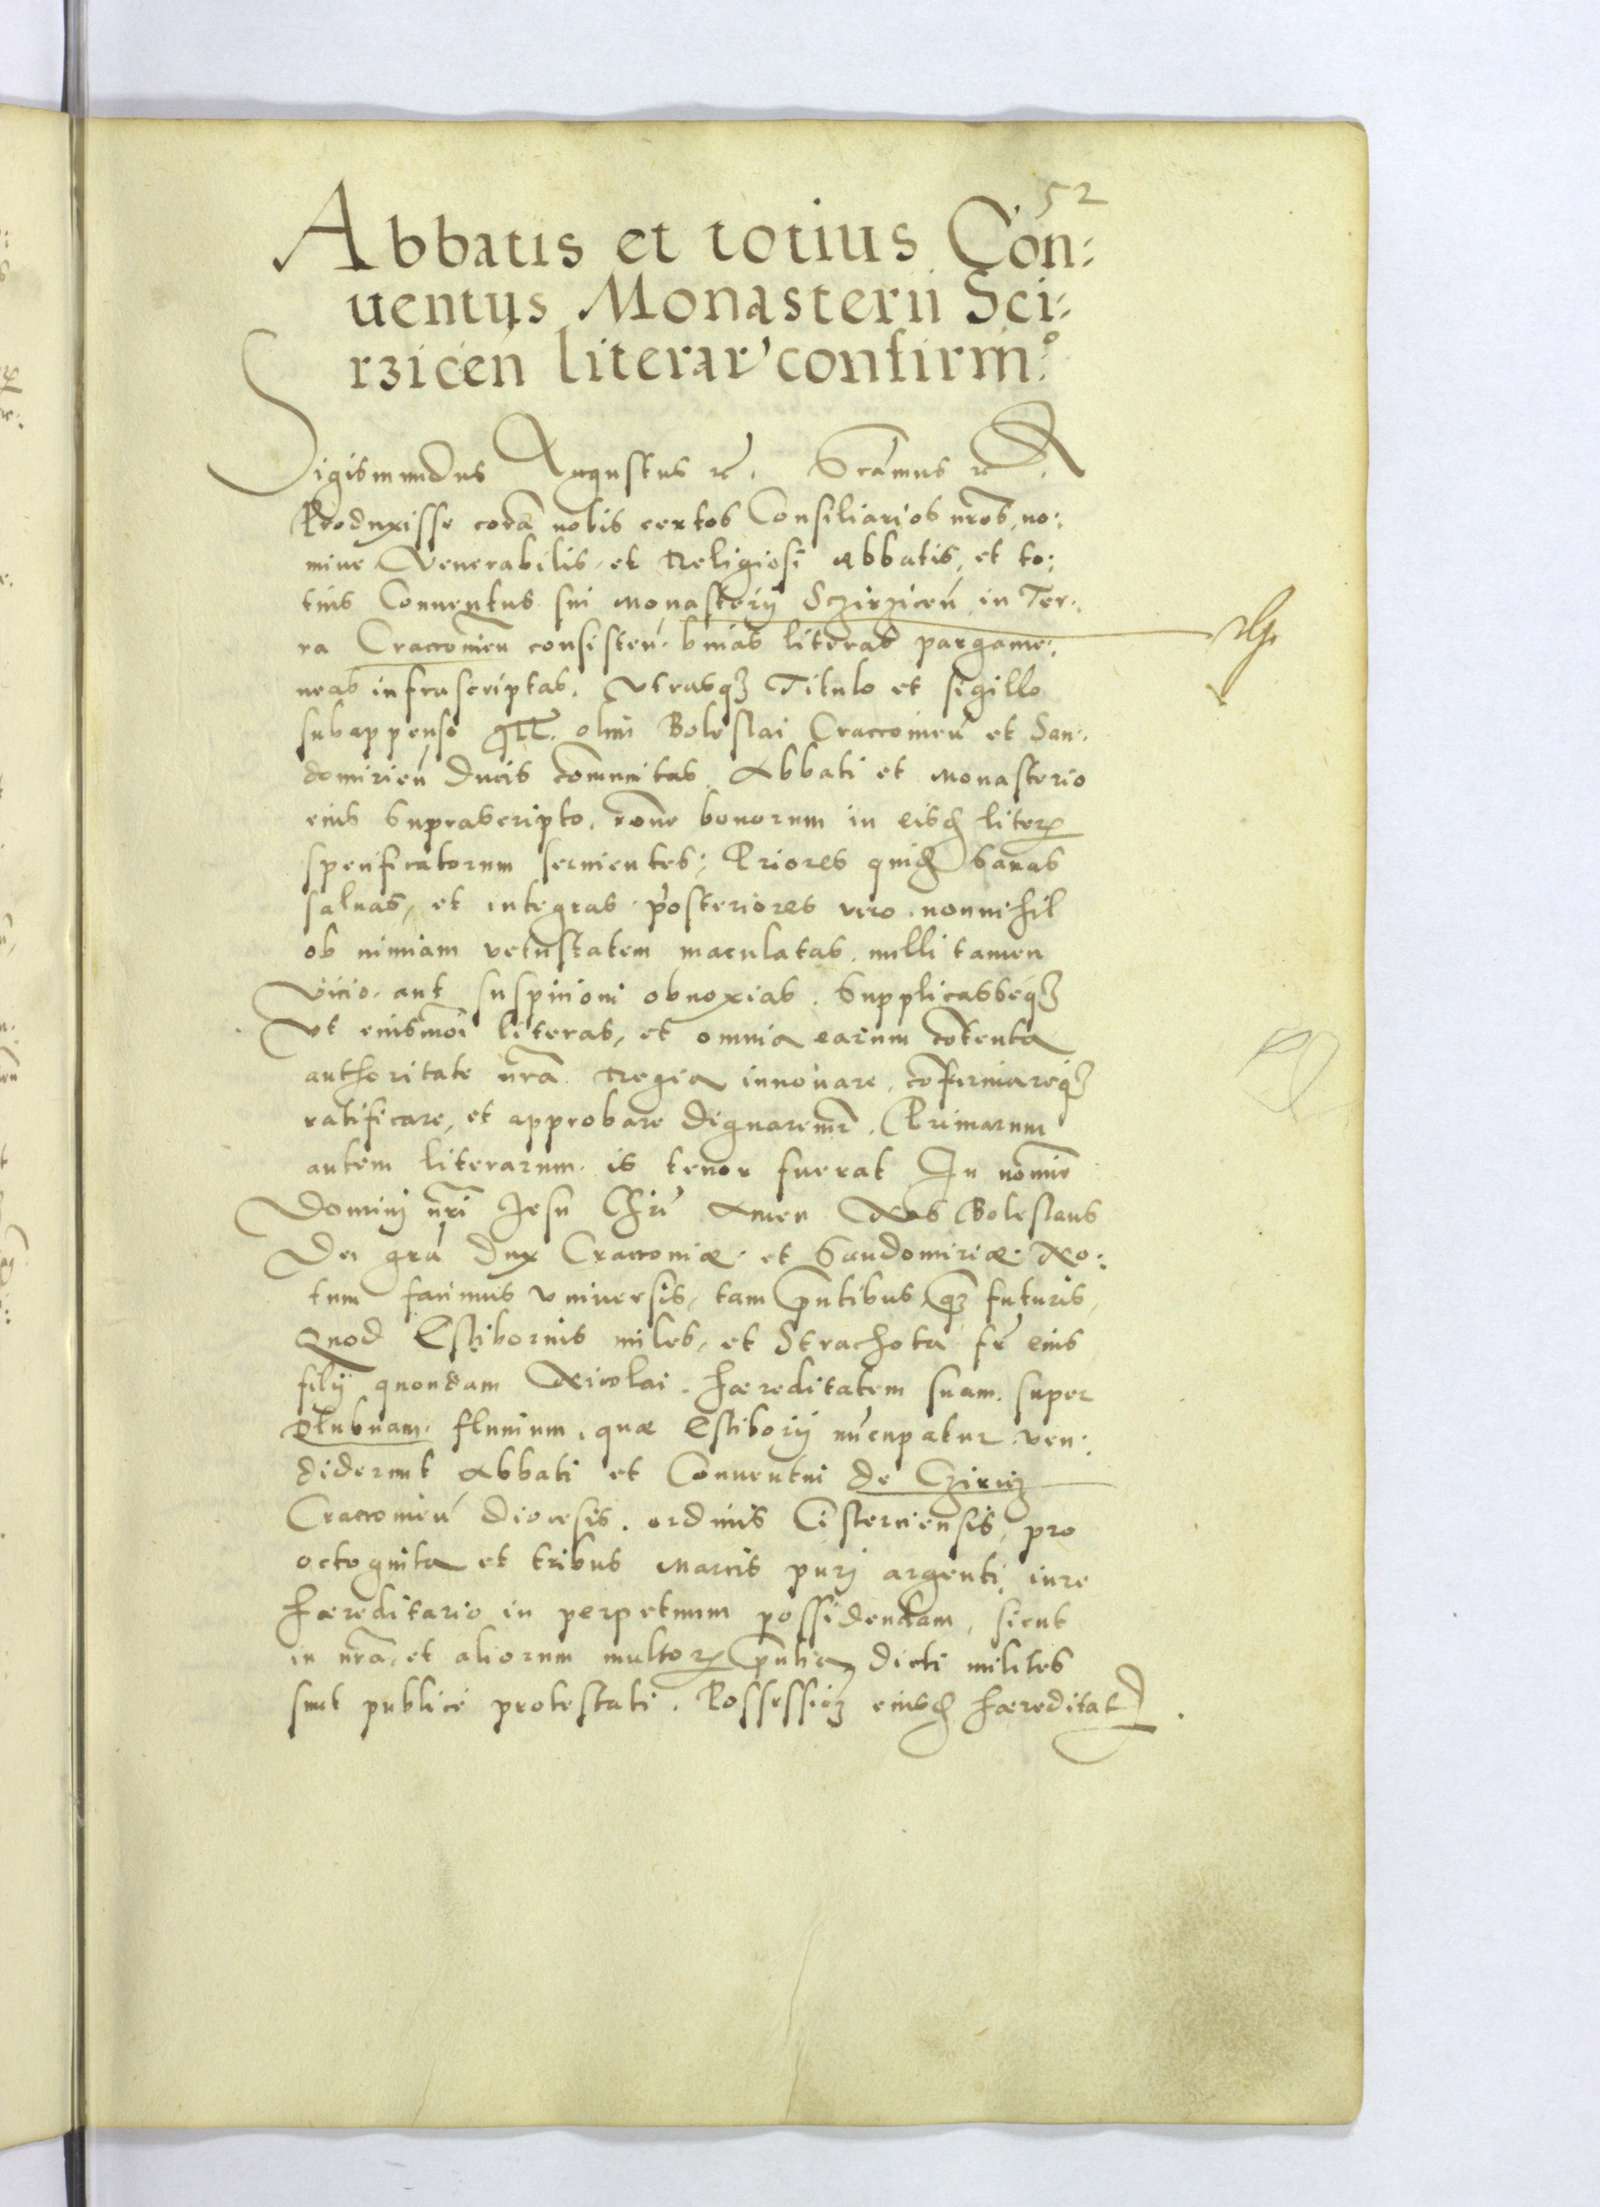 52
Abbatis et totius Con:
uentus Monasterii Sci:
rzicen̄ literar' confirm̄º
Sigismundus Augustus rc̄. Scām̄us rc̄
Produxisse corā nobis certos Consiliarios nr̄os, no:
mine Venerabilis et Religiosi Abbatis, et to:
tius Conuentus sui monasterij Sczirzicen̄ in Ter:
ra Cracouien̄ consisten̄. binas literas pargame:
neas infrascriptas, vtrasqȝ Titulo et sigillo
subappenso olim Boleslai Cracouien̄ et San:
domirien̄ Ducis com̄unitas Abbati et monasterio
eius suprascripto, rōne bonorum in eisd̄ literꝝ
specificatorum seruientes; Priores quid̄ sanas
saluas, et integras posteriores vero nonnihil
ob nimiam vetustatem maculatas, nulli tamen
vicio aut suspicioni obnoxias. Supplicasseqȝ
Vt eiusmōi literas, et omnia earum cōtenta
authoritate nr̄a Regia innouare, cōfirmareqȝ
ratificare, et approbare dignaremr̄. Primarum
autem literarum is tenor fuerat In nomīe
Dominj nr̄i Jesu Chrī Amen Nos Boleslaus
Dei grā Dux Cracouiæ et Sandomiriæ No:
tum facimus vniuersis, tam p̄ntibus qȝ futuris,
Quod Estibornis miles, et Strachota fr̄ eius
filij quondam Nicolai, hæreditatem suam super
Dlubnam fluuium, quæ Estiborij nūcupatur ven:
diderunt Abbati et Conuentui de Cziricz
Cracouien̄ diocesis, ordinis Cisterciensis, pro
octoginta et tribus marcis purj argenti iure
hæreditario in perpetuum possidendam, sicut
in nr̄a, et aliorum multorꝝ p̄ntia dicti milites
sunt publicè protestati. Possessiōȝ eiusd̄ hæreditat